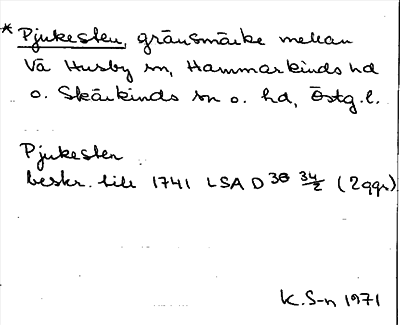 * Pjukesten, gränsmärke mellan
Vå Husby sn, Hammarkinds hd
o. Skärkinds sn o. hd, Östg. l.
Pjukesten
beskr. till 1741 LSA D 38 34/2 (2 ggr)
K. S-n 1971